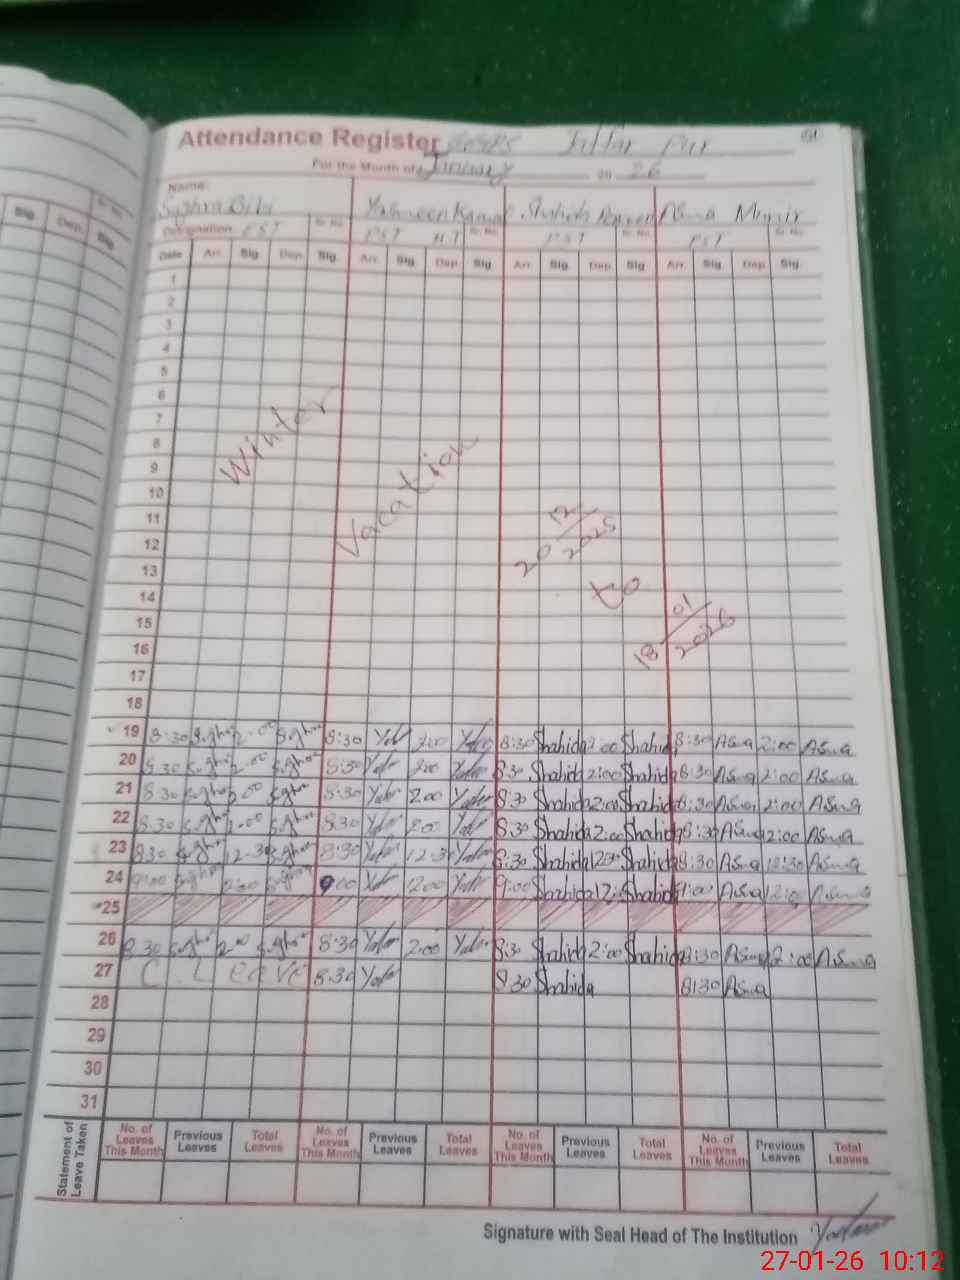 Attendance Register GGPS Jaffar Pur
For the Month of January 20 26
Name:
Sughra Bibi Yasmeen Kamal Shahida Parveen Asma Munir
Designation PST Sr. No. PST H.T Sr. No. PST Sr. No. PST Sr. No.
Date Arr. Sig. Dep. Sig. Arr. Sig. Dep. Sig. Arr. Sig. Dep. Sig. Arr. Sig. Dep. Sig.
1
2
3
4
5
6
7
8
9
10
11
12
13
14
15
16
17
18
Winter
Vacation
20 12/2025
to
18 01/2026
19 8:30 Sughra 2:00 Sughra 8:30 2:00 8:30 Shahida 2:00 Shahida 8:30 Asma 2:00 Asma
20 8:30 Sughra 2:00 Sughra 8:30 2:00 8:30 Shahida 2:00 Shahida 8:30 Asma 2:00 Asma
21 8:30 Sughra 2:00 Sughra 8:30 2:00 8:30 Shahida 2:00 Shahida 8:30 Asma 2:00 Asma
22 8:30 Sughra 2:00 Sughra 8:30 2:00 8:30 Shahida 2:00 Shahida 8:30 Asma 2:00 Asma
23 8:30 Sughra 12:30 Sughra 8:30 12:30 8:30 Shahida 12:30 Shahida 8:30 Asma 12:30 Asma
24 9:00 Sughra Sughra 9:00 12:00 9:00 Shahida Shahida 9:00 Asma 12:00 Asma
25
26 8:30 Sughra 2:00 Sughra 8:30 2:00 8:30 Shahida 2:00 Shahida 8:30 Asma 2:00 Asma
27 C. Leave 8:30 8:30 Shahida 8:30 Asma
28
29
30
31
Statement of Leave Taken
No. of Leaves This Month Previous Leaves Total Leaves No. of Leaves This Month Previous Leaves Total Leaves No. of Leaves This Month Previous Leaves Total Leaves No. of Leaves This Month Previous Leaves Total Leaves
Signature with Seal Head of The Institution
27-01-26 10:12
Sig. Dep. Sr. No. Sig.